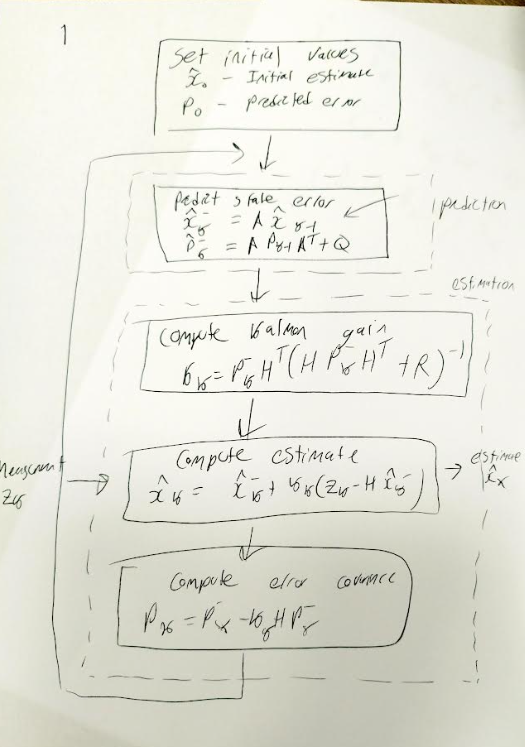 1
Set initial values
x̂₀ - Initial estimate
P₀ - predicted error
predict state error
x̂ₖ⁻ = A x̂ₖ₋₁
P̂ₖ⁻ = A Pₖ₋₁ Aᵀ + Q
prediction
estimation
Compute Kalman gain
Kₖ = Pₖ⁻ Hᵀ (H Pₖ⁻ Hᵀ + R)⁻¹
Compute estimate
x̂ₖ = x̂ₖ⁻ + Kₖ (zₖ - H x̂ₖ⁻)
zₖ
estimate
x̂ₖ
Compute error
Pₖ = Pₖ⁻ - Kₖ H Pₖ⁻